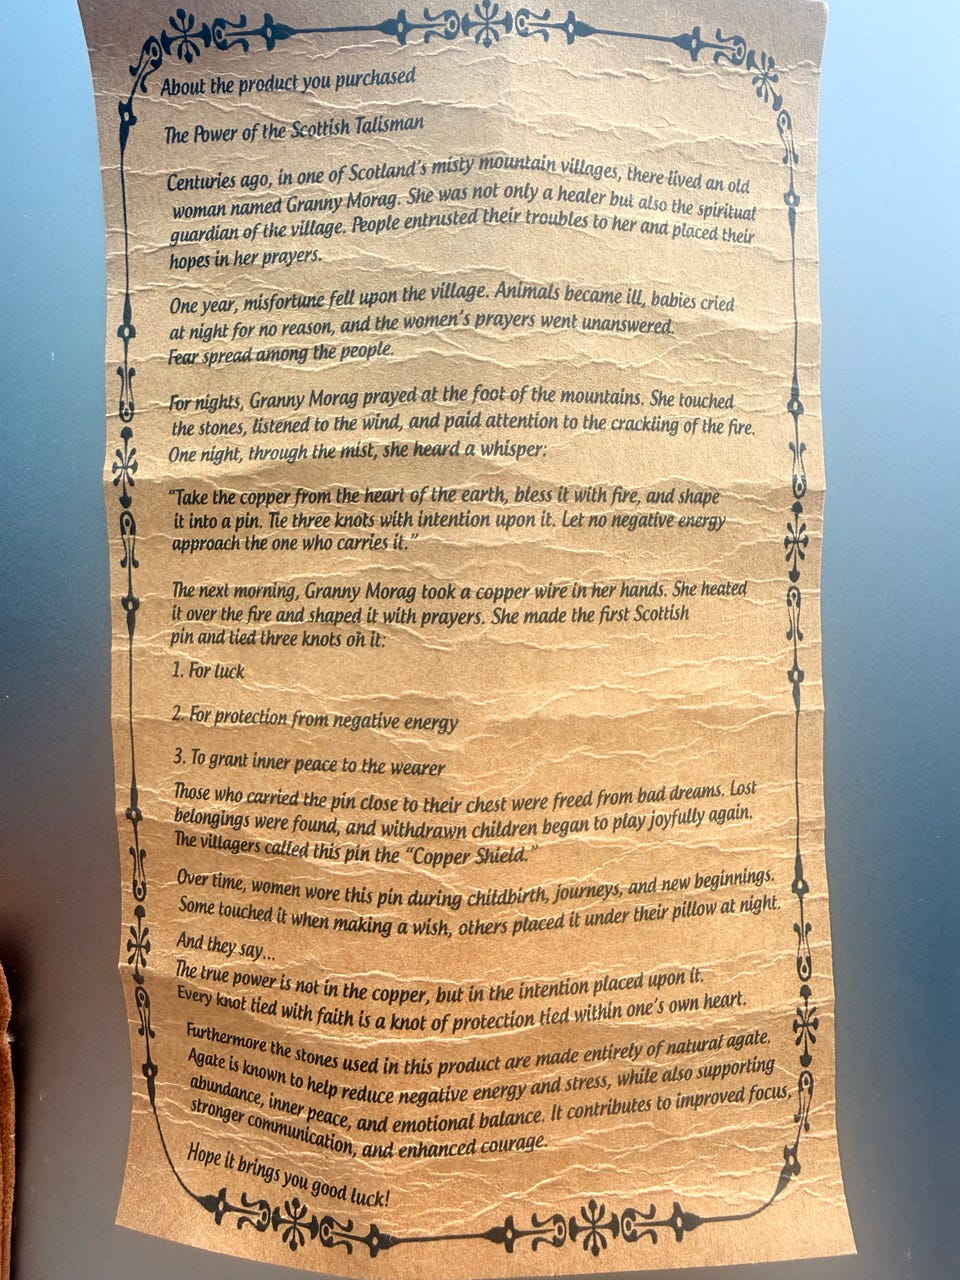 About the product you purchased
The Power of the Scottish Talisman
Centuries ago, in one of Scotland's misty mountain villages, there lived an old
woman named Granny Morag. She was not only a healer but also the spiritual
guardian of the village. People entrusted their troubles to her and placed their
hopes in her prayers.
One year, misfortune fell upon the village. Animals became ill, babies cried
at night for no reason, and the women's prayers went unanswered.
Fear spread among the people.
For nights, Granny Morag prayed at the foot of the mountains. She touched
the stones, listened to the wind, and paid attention to the crackling of the fire.
One night, through the mist, she heard a whisper:
“Take the copper from the heart of the earth, bless it with fire, and shape
it into a pin. Tie three knots with intention upon it. Let no negative energy
approach the one who carries it.”
The next morning, Granny Morag took a copper wire in her hands. She heated
it over the fire and shaped it with prayers. She made the first Scottish
pin and tied three knots on it:
1. For luck
2. For protection from negative energy
3. To grant inner peace to the wearer
Those who carried the pin close to their chest were freed from bad dreams. Lost
belongings were found, and withdrawn children began to play joyfully again.
The villagers called this pin the “Copper Shield.”
Over time, women wore this pin during childbirth, journeys, and new beginnings.
Some touched it when making a wish, others placed it under their pillow at night.
And they say...
The true power is not in the copper, but in the intention placed upon it.
Every knot tied with faith is a knot of protection tied within one's own heart.
Furthermore the stones used in this product are made entirely of natural agate.
Agate is known to help reduce negative energy and stress, while also supporting
abundance, inner peace, and emotional balance. It contributes to improved focus,
stronger communication, and enhanced courage.
Hope it brings you good luck!